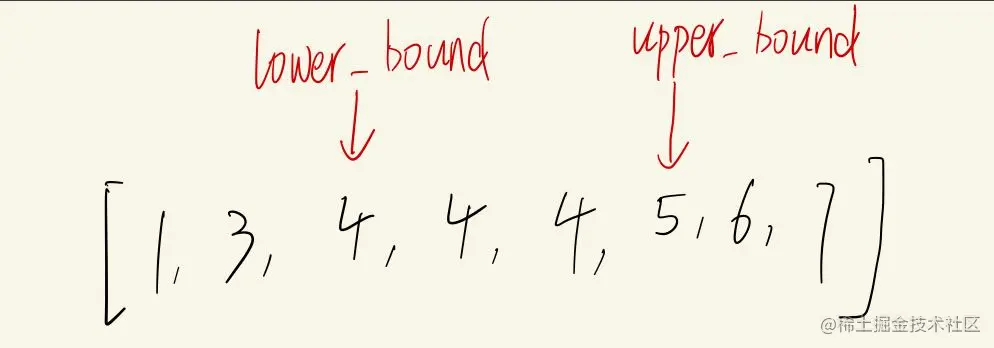 lower_bound upper_bound
[1, 3, 4, 4, 4, 5, 6, 7]
@稀土掘金技术社区